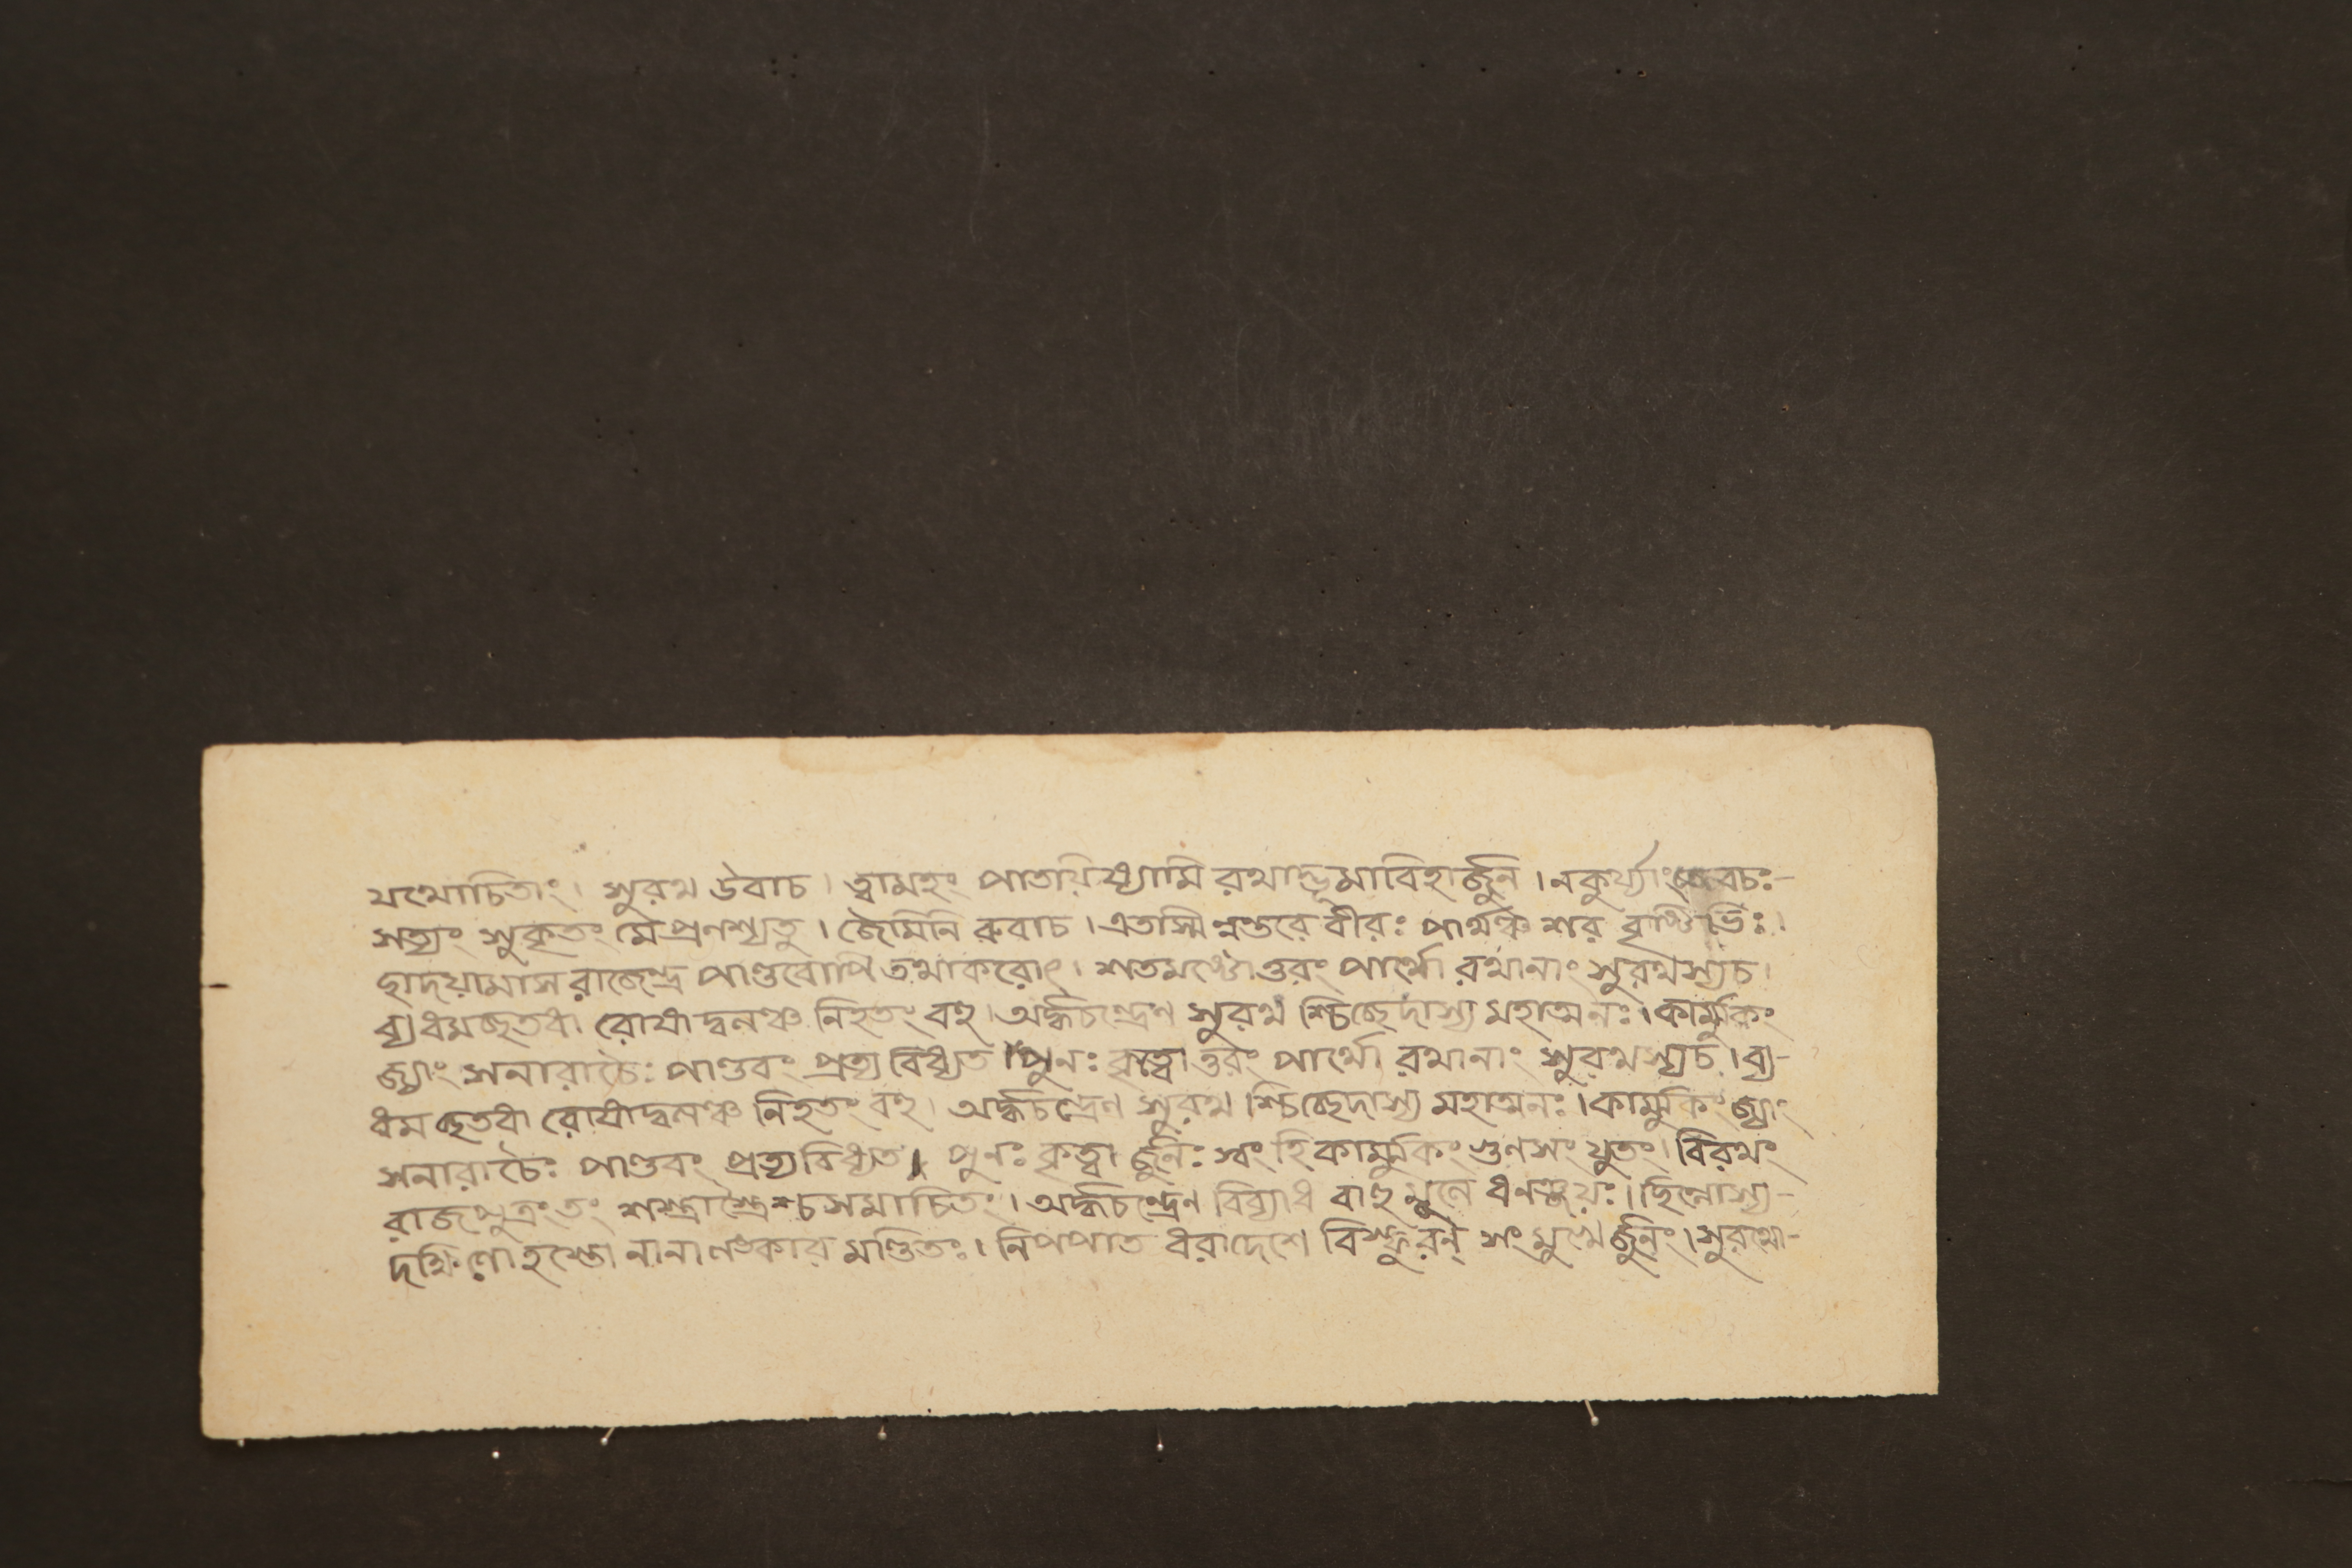 যথোচিতাং। সুরথ উবাচ। ত্বামহং পাতয়িষ্যামি রথাদ্ভূমাবিহার্জুন। নকুর্য্যাং বচঃ-
সত্যং সুকৃতং মে প্রনশ্যতু। জৈমিনি রুবাচ। এতস্মিন্নন্তরে বীরঃ পার্থঞ্চ শর বৃষ্টিভিঃ।
ছাদয়ামাস রাজেন্দ্র পাণ্ডবোপি তথাকরোৎ। শতমষ্টোত্তরং পার্থো রথানাং সুরথস্যচ।
ব্যধমচ্ছতধা রোষাদ্বলঞ্চ নিহতং বহু। অর্দ্ধচন্দ্রেণ সুরথ শ্চিচ্ছেদাস্য মহাত্মনঃ। কার্ম্মুকং
জ্যাং সনারাচৈঃ পাণ্ডবং প্রত্যবিধ্যত। পুনঃ কৃত্বোত্তরং পার্থো রথানাং সুরথস্যচ। ব্য-
ধমচ্ছতধা রোষাদ্বলঞ্চ নিহতং বহু। অর্দ্ধচন্দ্রেণ সুরথ শ্চিচ্ছেদাস্য মহাত্মনঃ। কার্ম্মুকং জ্যাং
সনারাচৈঃ পাণ্ডবং প্রত্যবিধ্যত। পুনঃ কৃত্বার্জুনঃ স্বং হি কার্ম্মুকং গুণসংযুতং। বিরথং
রাজপুত্রং তং শস্ত্রাস্ত্রৈশ্চ সমাচিতং। অর্দ্ধচন্দ্রেন বিব্যাধ বাহুমূলে ধনঞ্জয়ঃ। ছিন্নোস্য-
দক্ষিণো হস্তো নানালংকার মণ্ডিতঃ। নিপপাত ধরাদেশে বিস্ফুরন্ সংমুখের্জুনং। সুরথো-